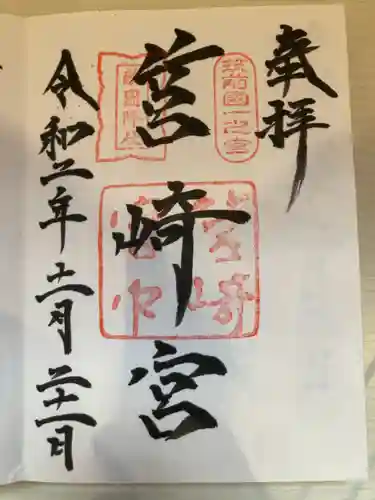 奉拝
筑前國一之宮
筥崎宮
敵国降伏
筥崎宮印
令和二年十一月二十一日